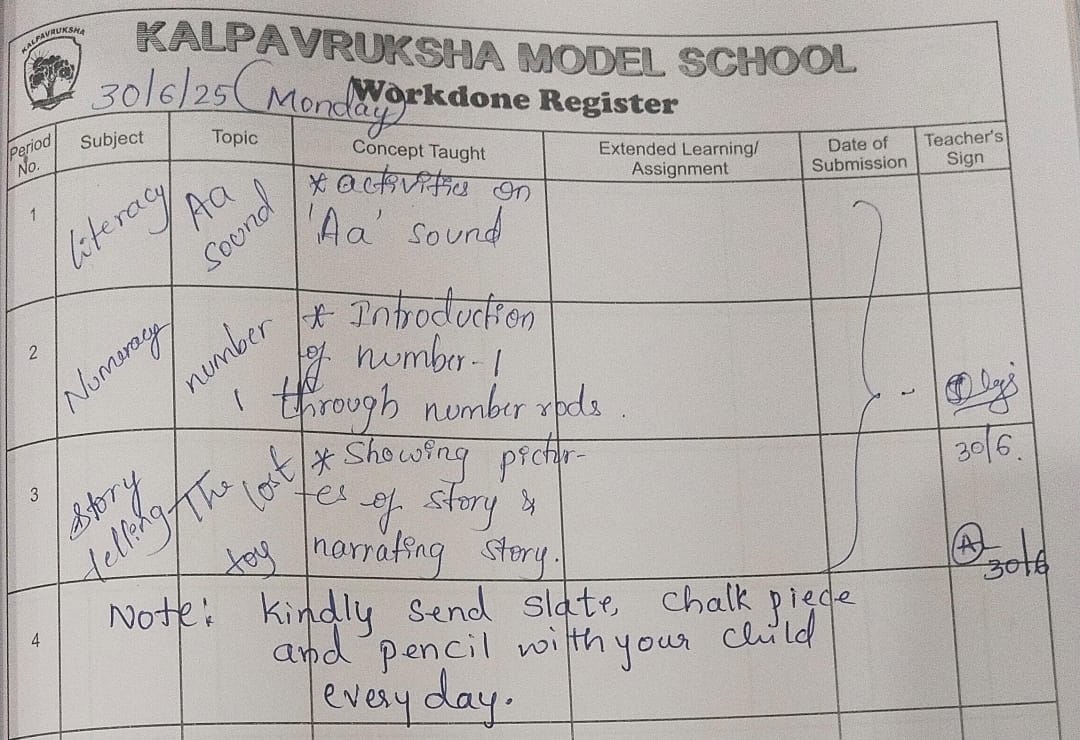 KALPAVRUKSHA
KALPAVRUKSHA MODEL SCHOOL
30/6/25 (Monday)
Workdone Register
Period No.
Subject
Topic
Concept Taught
Extended Learning/
Assignment
Date of
Submission
Teacher's
Sign
1
Literacy
Aa
Sound
* activities on
'Aa' sound
2
Numeracy
number
1
* Introduction
of number-1
through number rods.
3
Story
telling
The lost
toy
* Showing pictur-
es of story &
narrating story.
30/6.
A
30/6
4
Note: Kindly send slate, chalk piece
and pencil with your child
every day.